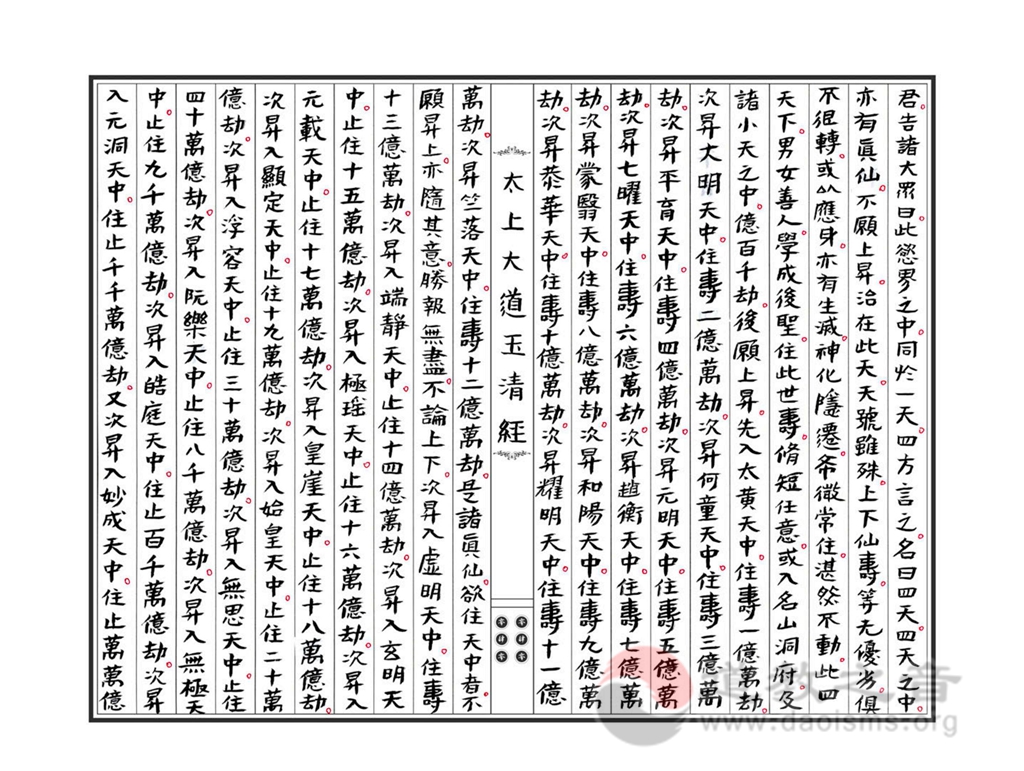 君告諸大眾曰此慾界之中同於一天四方言之名曰四天四天之中
亦有眞仙不願上昇治在此天天號雖殊上下仙壽等无優劣俱
不退轉或以應身亦有生滅神化隱遷希微常住湛然不動此四
天下男女善人學成後聖住此世壽脩短任意或入名山洞府及
諸小天之中億百千劫後願上昇先入太黃天中住壽一億萬劫
次昇大明天中住壽二億萬劫次昇何童天中住壽三億萬
劫次昇平育天中住壽四億萬劫次昇元明天中住壽五億萬
劫次昇七曜天中住壽六億萬劫次昇越衡天中住壽七億萬
劫次昇蒙翳天中住壽八億萬劫次昇和陽天中住壽九億萬
劫次昇恭華天中住壽十億萬劫次昇耀明天中住壽十一億
太上大道玉清經
萬劫次昇竺落天中住壽十二億萬劫是諸眞仙欲住天中者不
願昇上亦隨其意勝報無盡不論上下次昇入虛明天中住壽
十三億萬劫次昇入端靜天中止住十四億萬劫次昇入玄明天
中止住十五萬億劫次昇入極瑤天中止住十六萬億劫次昇入
元載天中止住十七萬億劫次昇入皇崖天中止住十八萬億劫
次昇入顯定天中止住十九萬億劫次昇入始皇天中止住二十萬
億劫次昇入浮容天中止住三十萬億劫次昇入無思天中止住
四十萬億劫次昇入阮樂天中止住八千萬億劫次昇入無極天
中止住九千萬億劫次昇入皓庭天中住止百千萬億劫次昇
入元洞天中住止千千萬億劫又次昇入妙成天中住止萬萬億
道教之音
www.daoisms.org